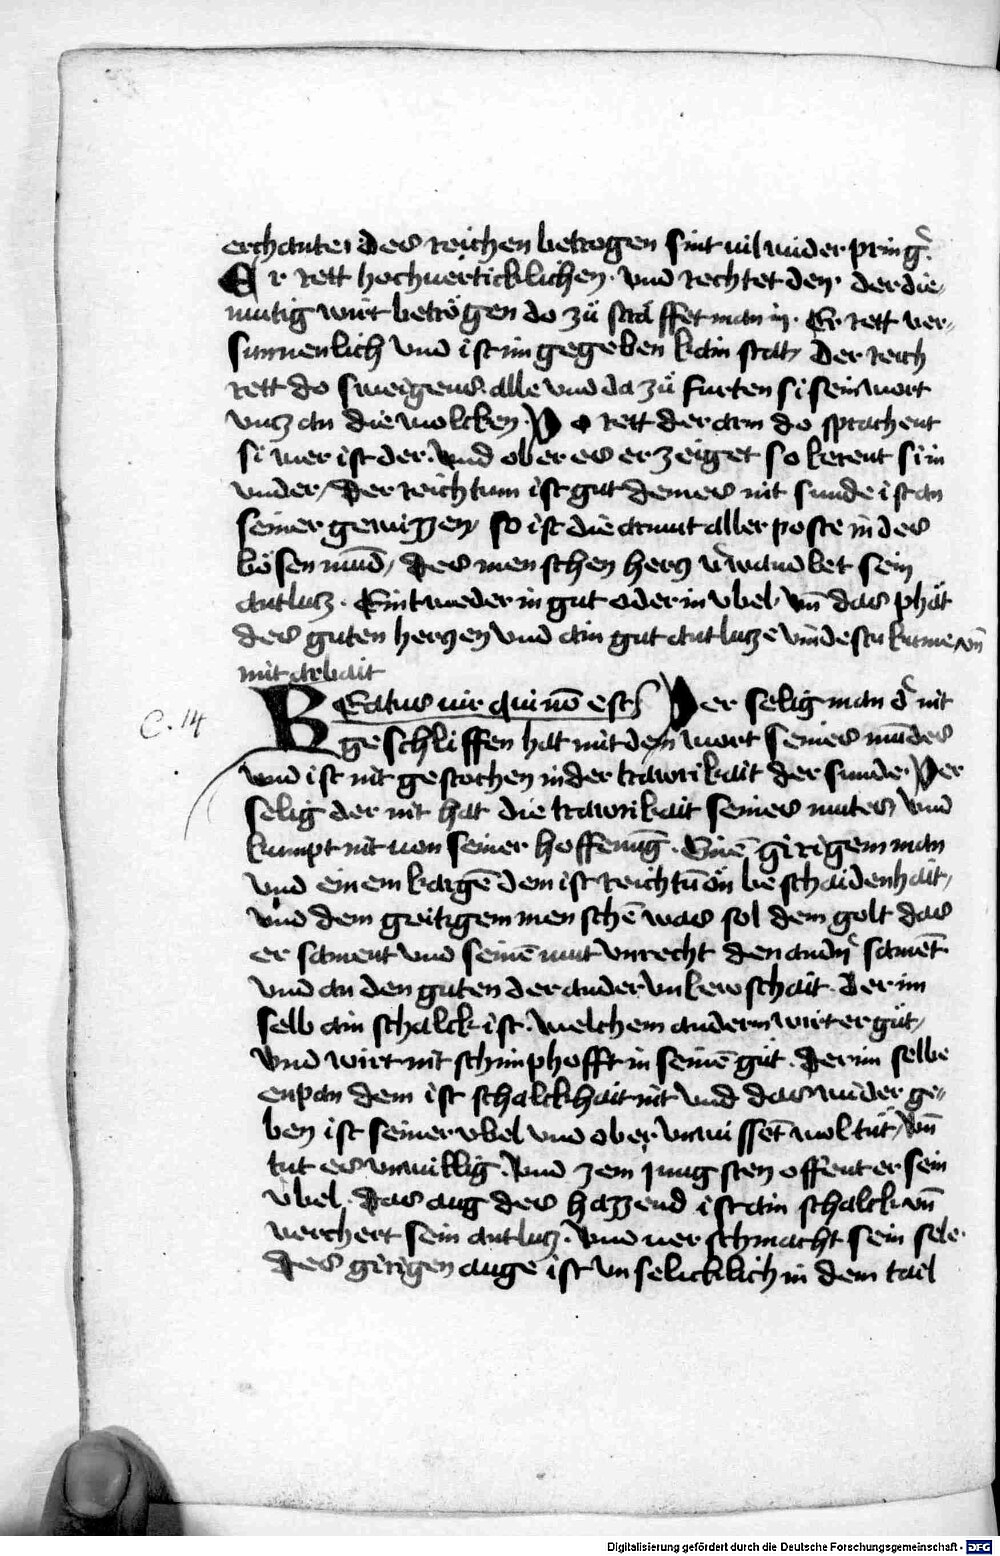 erchanter des reichen betrogen sint vil wider pring̕
Er rett hochuerticklichen. vnd rechtet den. der die⸗
mutig wirt betrogen do zü straffet man in. Er rett ver⸗
sunnenlich vnd ist im gegeben kain stat, Der reich
rett do sweigens alle vnd da zü furten si sein wort
vncz an die wolcken. Do rett der arm do sprachent
si wer ist der. vnd ober es erzeiget so kerent si in
vnder, Der reichtum ist gut dem es nit sunde ist an
seiner gewissen, so ist die armut aller poste in des
bösen mūd, Des menschen hercz v̕wandlet sein
antlucz. Eintweder in gut oder in vbel. vn̄ das phät
des guten herczen vnd ain gut antlucze vindestu kume vn̄
mit arbait
C. 14
BEatus vir qui nō est Der selig man d̕ nit
geschliffen hat mit dem wort seines mūdes
vnd ist nit gestochen in der trawrikait der sunde. Der
selig der nit hat die trawrikait seines mutes vnd
kumpt nit von seiner hoffenūg. Einē girigem man
vnd einem kargē dem ist reichtū ön beschaidenhait,
vnd dem geitigem menschē was sol dem golt das
er sament vnd seinē mut vnrecht den andn̕ samēt
vnd an den guten der ander vnkewschait. Der im
selb ain schalck ist. welchem andern wirt er güt,
vnd wirt nit schimphofft in seinē güt. Der im selbe
enpan dem ist schalckhait nit vnd das wider ge⸗
ben ist seiner vbel vnd ober vnwissēt wol tüt, vn̄
tut es vnwillig. vnd zem jungsten offent er sein
vbel. Das aug des hazzend ist ain schalck vn̄
verchert sein antlucz. vnd verschmacht sein sele.
Des girigen auge ist vnselicklich in dem tail
Digitalisierung gefördert durch die Deutsche Forschungsgemeinschaft - DFG